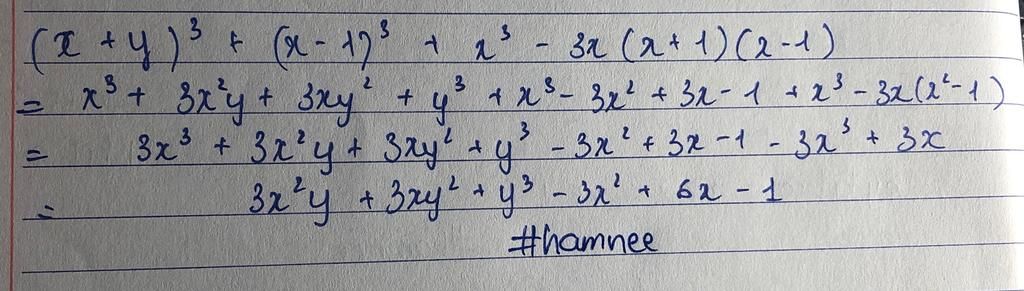 (x + y)³ + (x - 1)³ + x³ - 3x (x + 1) (x - 1)
= x³ + 3x²y + 3xy² + y³ + x³ - 3x² + 3x - 1 + x³ - 3x(x² - 1)
= 3x³ + 3x²y + 3xy² + y³ - 3x² + 3x - 1 - 3x³ + 3x
= 3x²y + 3xy² + y³ - 3x² + 6x - 1
#hamnee